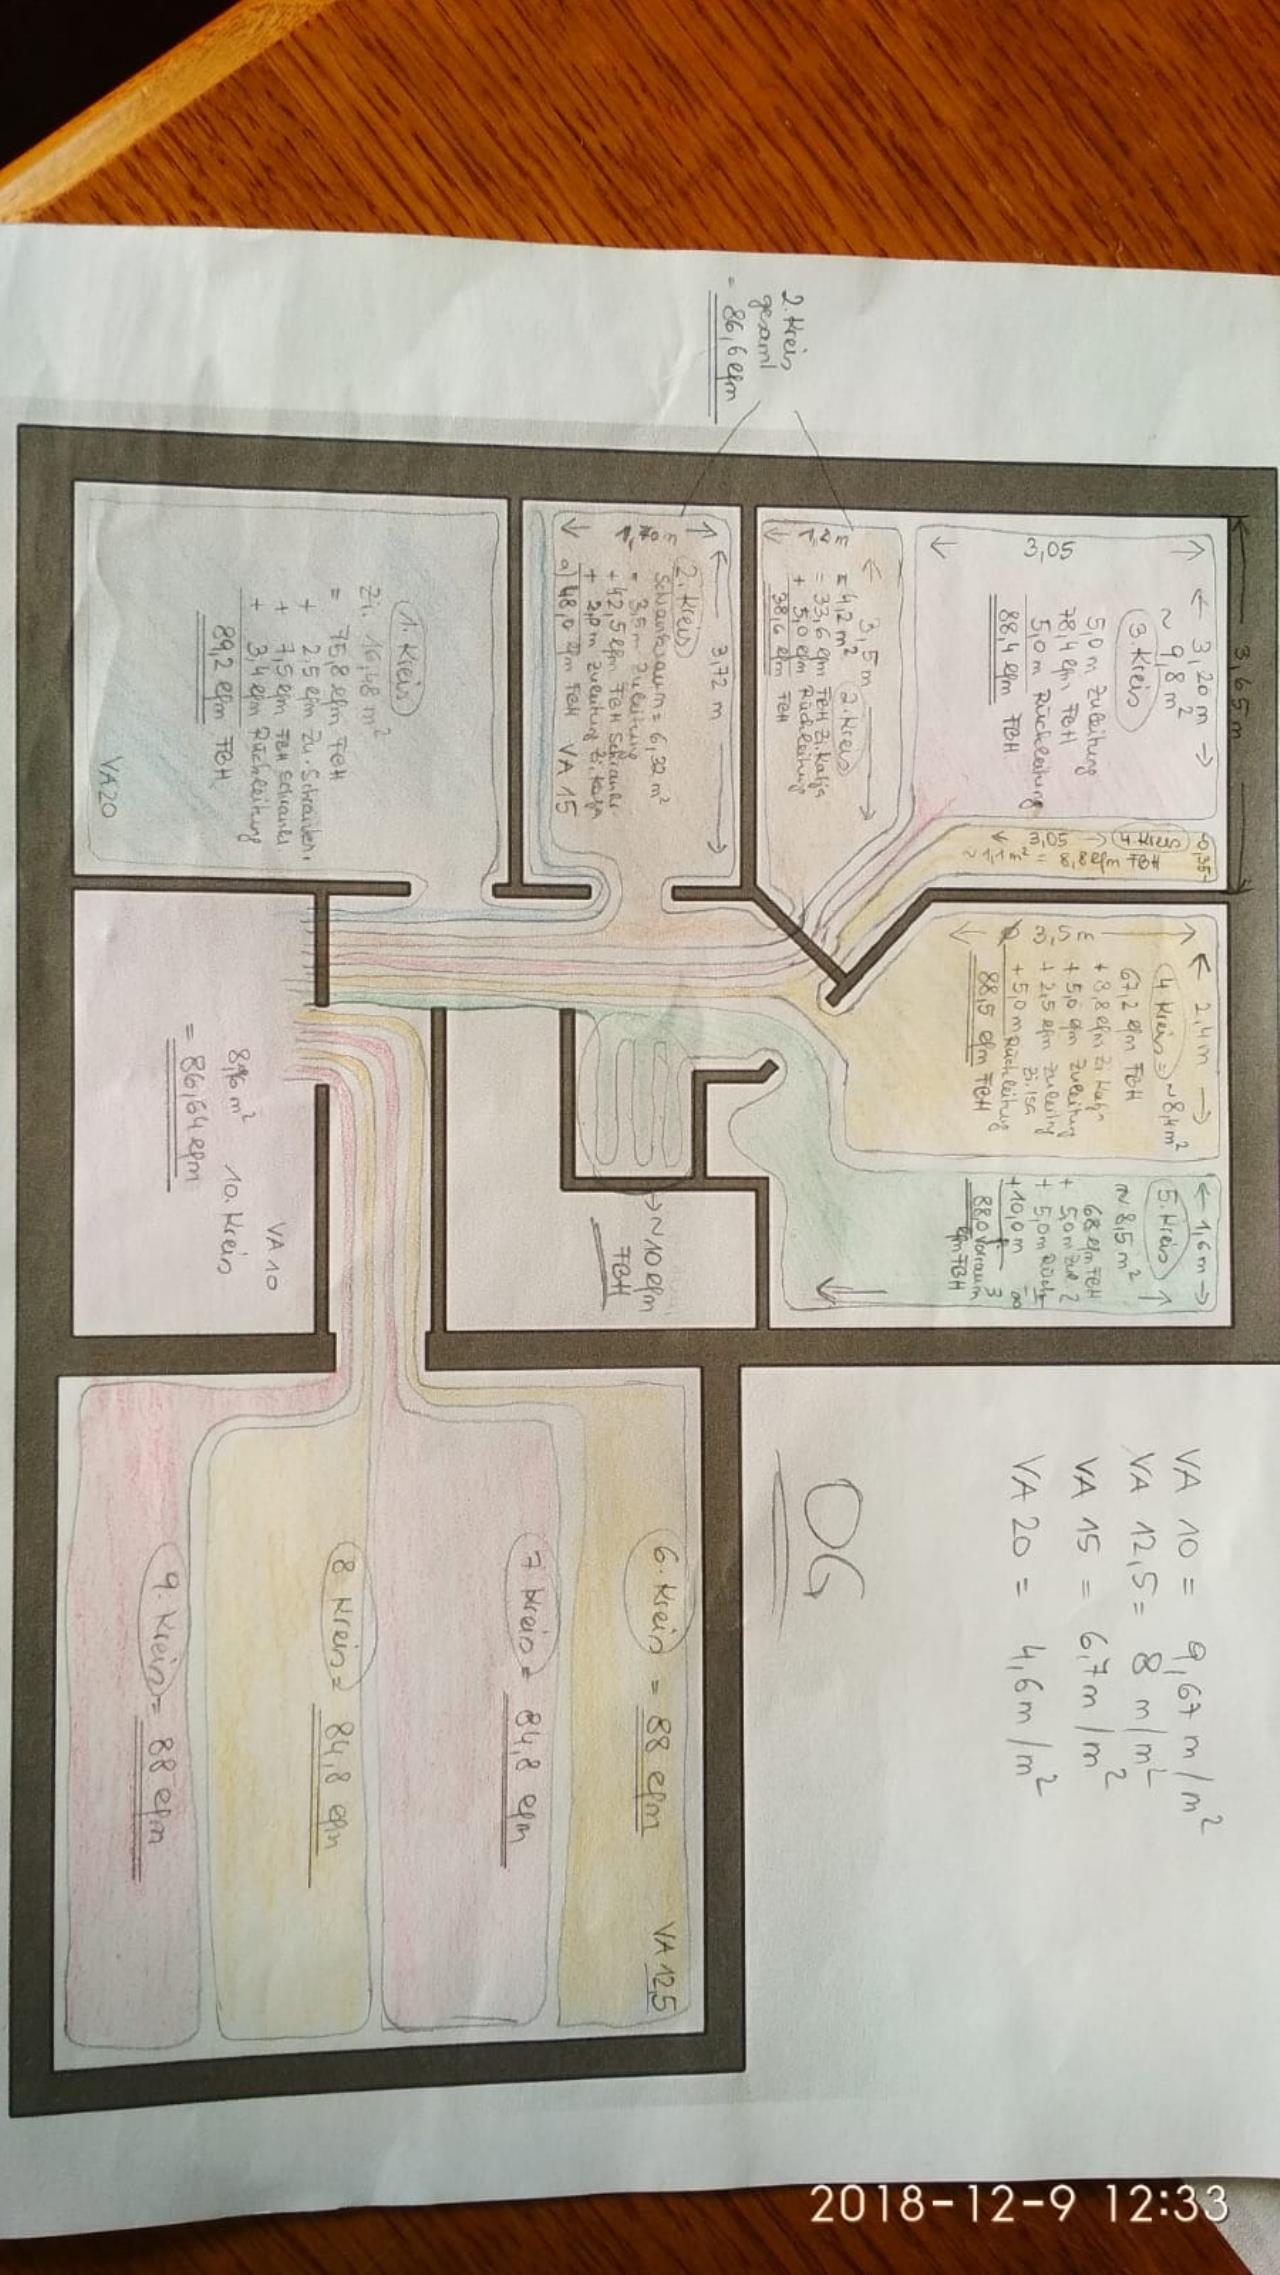 2. Kreis
gesamt
= 86,6 lfm
3,65 m
3,05
3,20 m
~ 9,8 m²
3. Kreis
5,0 m Zuleitung
78,4 lfm FBH
5,0 m Rückleitung
88,4 lfm FBH
0,35
4 Kreis
3,05
~ 1,1 m² = 8,8 lfm FBH
1,2 m
3,5 m
= 4,2 m² 2. Kreis
= 33,6 lfm FBH Zi. Katja
+ 5,0 lfm Rückleitung
38,6 lfm FBH
3,72 m
2. Kreis
Schrankraum = 6,32 m²
= 3,5 m Zuleitung
+ 42,5 lfm FBH Schrankr.
+ 2,0 m Zuleitung Zi. Katja
a) 48,0 lfm FBH VA 15
1. Kreis
Zi. 16,48 m²
= 75,8 lfm FBH
+ 2,5 lfm Zu. Schrankr.
+ 7,5 lfm FBH Schrankr.
+ 3,4 lfm Rückleitung
89,2 lfm FBH
VA 20
2,4 m
4 Kreis = ~ 8,4 m²
3,5 m
67,2 lfm FBH
+ 8,8 lfm Zi Katja
+ 5,0 lfm Zuleitung
+ 2,5 lfm Zuleitung
Zi. Isa
+ 5,0 m Rückleitung
88,5 lfm FBH
1,6 m
5. Kreis
~ 8,5 m²
68 lfm FBH
+ 5,0 m Zul
+ 5,0 m Rückl
+ 10,0 m Vorraum
88,0 lfm FBH
~ 10 lfm
FBH
VA 10
8,96 m² 10. Kreis
= 86,64 lfm
6. Kreis = 88 lfm
VA 12,5
7 Kreis = 84,8 lfm
8 Kreis = 84,8 lfm
9. Kreis = 88 lfm
OG
VA 10 = 9,67 m/m²
VA 12,5 = 8 m/m²
VA 15 = 6,7 m/m²
VA 20 = 4,6 m/m²
2018-12-9 12:33